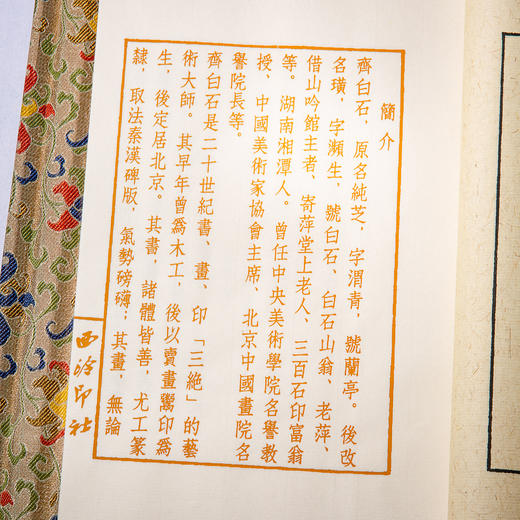 簡介
齊白石，原名純芝，字渭青，號蘭亭。後改
名璜，字瀕生，號白石、白石山翁、老萍、
借山吟館主者、寄萍堂上老人、三百石印富翁
等。湖南湘潭人。曾任中央美術學院名譽教
授、中國美術家協會主席、北京中國畫院名
譽院長等。
齊白石是二十世紀書、畫、印「三絶」的藝
術大師。其早年曾爲木工，後以賣畫鬻印爲
生，後定居北京。其書，諸體皆善，尤工篆
隸，取法秦漢碑版，氣勢磅礴；其畫，無論
西泠印社